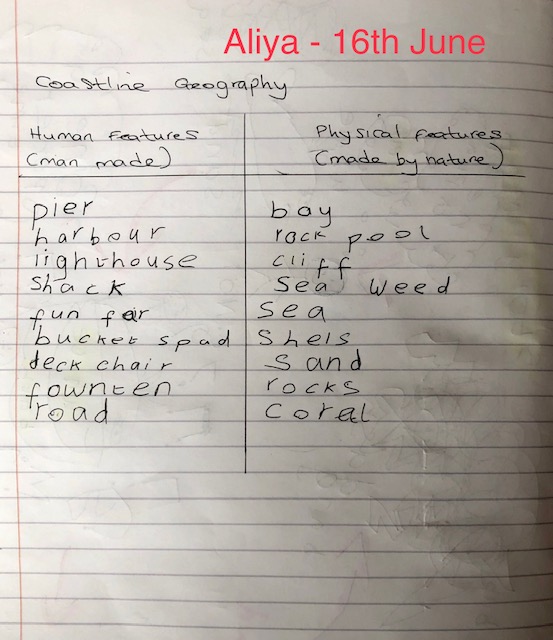 Aliya - 16th June
Coastline Geography
Human features
(man made)
Physical features
(made by nature)
pier
harbour
lighthouse
shack
fun fair
bucket spad
deck chair
fownten
road
bay
rock pool
cliff
sea weed
sea
shels
sand
rocks
coral